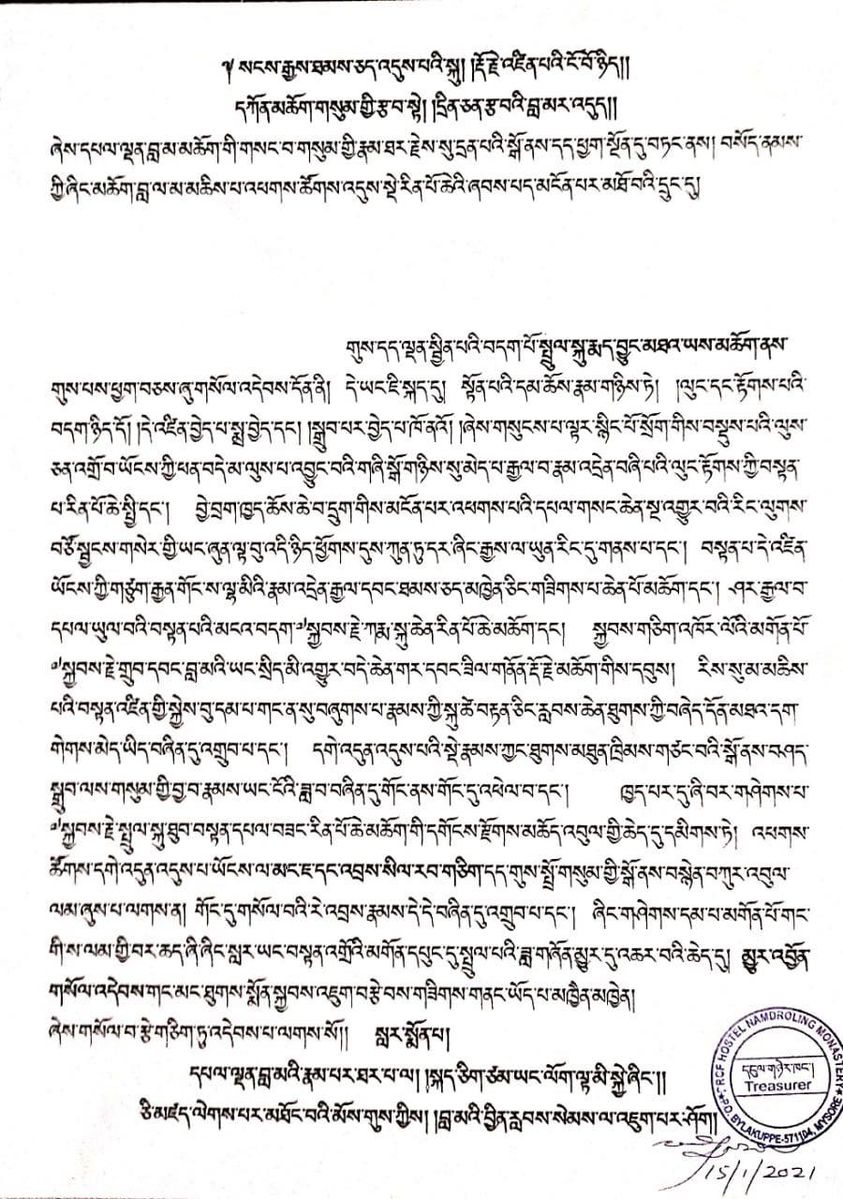 ༈ སངས་རྒྱས་ཐམས་ཅད་འདུས་པའི་སྐུ། །རྡོ་རྗེ་འཛིན་པའི་ངོ་བོ་ཉིད།།
དཀོན་མཆོག་གསུམ་གྱི་རྩ་བ་སྟེ། །དྲིན་ཅན་རྩ་བའི་བླ་མར་འདུད།།
ཞེས་དཔལ་ལྡན་བླ་མ་མཆོག་གི་གསང་བ་གསུམ་གྱི་རྣམ་ཐར་རྗེས་སུ་དྲན་པའི་སྒོ་ནས་དད་ཕྱག་སྔོན་དུ་བཏང་ནས། བསོད་ནམས་
ཀྱི་ཞིང་མཆོག་བླ་ལ་མ་མཆིས་པ་འཕགས་ཚོགས་འདུས་སྡེ་རིན་པོ་ཆེའི་ཞབས་པད་མངོན་པར་མཐོ་བའི་དྲུང་དུ།
གུས་དད་ལྡན་སྦྱིན་པའི་བདག་པོ་སྤྲུལ་སྐུ་རྨད་བྱུང་མཐའ་ཡས་མཆོག་ནས་
གུས་པས་ཕྱག་བཅས་ཞུ་གསོལ་འདེབས་དོན་ནི། དེ་ཡང་ཇི་སྐད་དུ། སྟོན་པའི་དམ་ཆོས་རྣམ་གཉིས་ཏེ། །ལུང་དང་རྟོགས་པའི་
བདག་ཉིད་དོ། །དེ་འཛིན་བྱེད་པ་སྨྲ་བྱེད་དང་། །སྒྲུབ་པར་བྱེད་པ་ཁོ་ནའོ། །ཞེས་གསུངས་པ་ལྟར་སྙིང་པོ་སྲོག་གིས་བསྡུས་པའི་ལུས་
ཅན་འགྲོ་བ་ཡོངས་ཀྱི་ཕན་བདེ་མ་ལུས་པ་འབྱུང་བའི་གཞི་སྒོ་གཉིས་སུ་མེད་པ་རྒྱལ་བ་རྣམ་འདྲེན་བཞི་པའི་ལུང་རྟོགས་ཀྱི་བསྟན་
པ་རིན་པོ་ཆེ་སྤྱི་དང་། བྱེ་བྲག་ཁྱད་ཆོས་ཆེ་བ་དྲུག་གིས་མངོན་པར་འཕགས་པའི་དཔལ་གསང་ཆེན་སྔ་འགྱུར་བའི་རིང་ལུགས་
བཙོ་སྦྱངས་གསེར་གྱི་ཡང་ཞུན་ལྟ་བུ་འདི་ཉིད་ཕྱོགས་དུས་ཀུན་ཏུ་དར་ཞིང་རྒྱས་ལ་ཡུན་རིང་དུ་གནས་པ་དང་། བསྟན་པ་དེ་འཛིན་
ཡོངས་ཀྱི་གཙུག་རྒྱན་གོང་ས་ལྷ་མིའི་རྣམ་འདྲེན་རྒྱལ་དབང་ཐམས་ཅད་མཁྱེན་ཅིང་གཟིགས་པ་ཆེན་པོ་མཆོག་དང་། ཤར་རྒྱལ་བ་
དཔལ་ཡུལ་བའི་བསྟན་པའི་མངའ་བདག་༸སྐྱབས་རྗེ་ཀརྨ་སྐུ་ཆེན་རིན་པོ་ཆེ་མཆོག་དང་། སྐྱབས་གཅིག་འཁོར་ལོའི་མགོན་པོ་
༸སྐྱབས་རྗེ་གྲུབ་དབང་བླ་མའི་ཡང་སྲིད་མི་འགྱུར་བདེ་ཆེན་གར་དབང་ཟིལ་གནོན་རྡོ་རྗེ་མཆོག་གིས་དབུས། རིས་སུ་མ་མཆིས་
པའི་བསྟན་འཛིན་གྱི་སྐྱེས་བུ་དམ་པ་གང་ན་སུ་བཞུགས་པ་རྣམས་ཀྱི་སྐུ་ཚེ་བརྟན་ཅིང་རླབས་ཆེན་ཐུགས་ཀྱི་བཞེད་དོན་མཐའ་དག་
གེགས་མེད་ཡིད་བཞིན་དུ་འགྲུབ་པ་དང་། དགེ་འདུན་འདུས་པའི་སྡེ་རྣམས་ཀྱང་ཐུགས་མཐུན་ཁྲིམས་གཙང་བའི་སྒོ་ནས་བཤད་
སྒྲུབ་ལས་གསུམ་གྱི་བྱ་བ་རྣམས་ཡང་ངོའི་ཟླ་བ་བཞིན་དུ་གོང་ནས་གོང་དུ་འཕེལ་བ་དང་། ཁྱད་པར་དུ་ཞི་བར་གཤེགས་པ་
༸སྐྱབས་རྗེ་སྤྲུལ་སྐུ་ཐུབ་བསྟན་དཔལ་བཟང་རིན་པོ་ཆེ་མཆོག་གི་དགོངས་རྫོགས་མཆོད་འབུལ་གྱི་ཆེད་དུ་དམིགས་ཏེ། འཕགས་
ཚོགས་དགེ་འདུན་འདུས་པ་ཡོངས་ལ་མང་ཇ་དང་འབྲས་སིལ་རབ་གཅིག་དད་གུས་སྤྲོ་གསུམ་གྱི་སྒོ་ནས་བསྙེན་བཀུར་འབུལ་
ལམ་ཞུས་པ་ལགས་ན། གོང་དུ་གསོལ་བའི་རེ་འབྲས་རྣམས་དེ་དེ་བཞིན་དུ་འགྲུབ་པ་དང་། ཞིང་གཤེགས་དམ་པ་མགོན་པོ་གང་
གི་ས་ལམ་གྱི་བར་ཆད་ཞི་ཞིང་སླར་ཡང་བསྟན་འགྲོའི་མགོན་དཔུང་དུ་སྤྲུལ་པའི་ཟླ་གཞོན་མྱུར་དུ་འཆར་བའི་ཆེད་དུ། མྱུར་འབྱོན་
གསོལ་འདེབས་གང་མང་ཐུགས་སྨོན་སྐྱབས་འཇུག་བརྩེ་བས་གཟིགས་གནང་ཡོད་པ་མཁྱེན་མཁྱེན།
ཞེས་གསོལ་བ་རྩེ་གཅིག་ཏུ་འདེབས་པ་ལགས་སོ།། སླར་སྨོན་པ།
དཔལ་ལྡན་བླ་མའི་རྣམ་པར་ཐར་པ་ལ། །སྐད་ཅིག་ཙམ་ཡང་ལོག་ལྟ་མི་སྐྱེ་ཞིང་།།
ཅི་མཛད་ལེགས་པར་མཐོང་བའི་མོས་གུས་ཀྱིས། །བླ་མའི་བྱིན་རླབས་སེམས་ལ་འཇུག་པར་ཤོག།
RCF HOSTEL NAMDROLING MONASTERY
དངུལ་གཉེར་ཁང་།
Treasurer
P.O. BYLAKUPPE-571104, MYSORE
15/1/2021